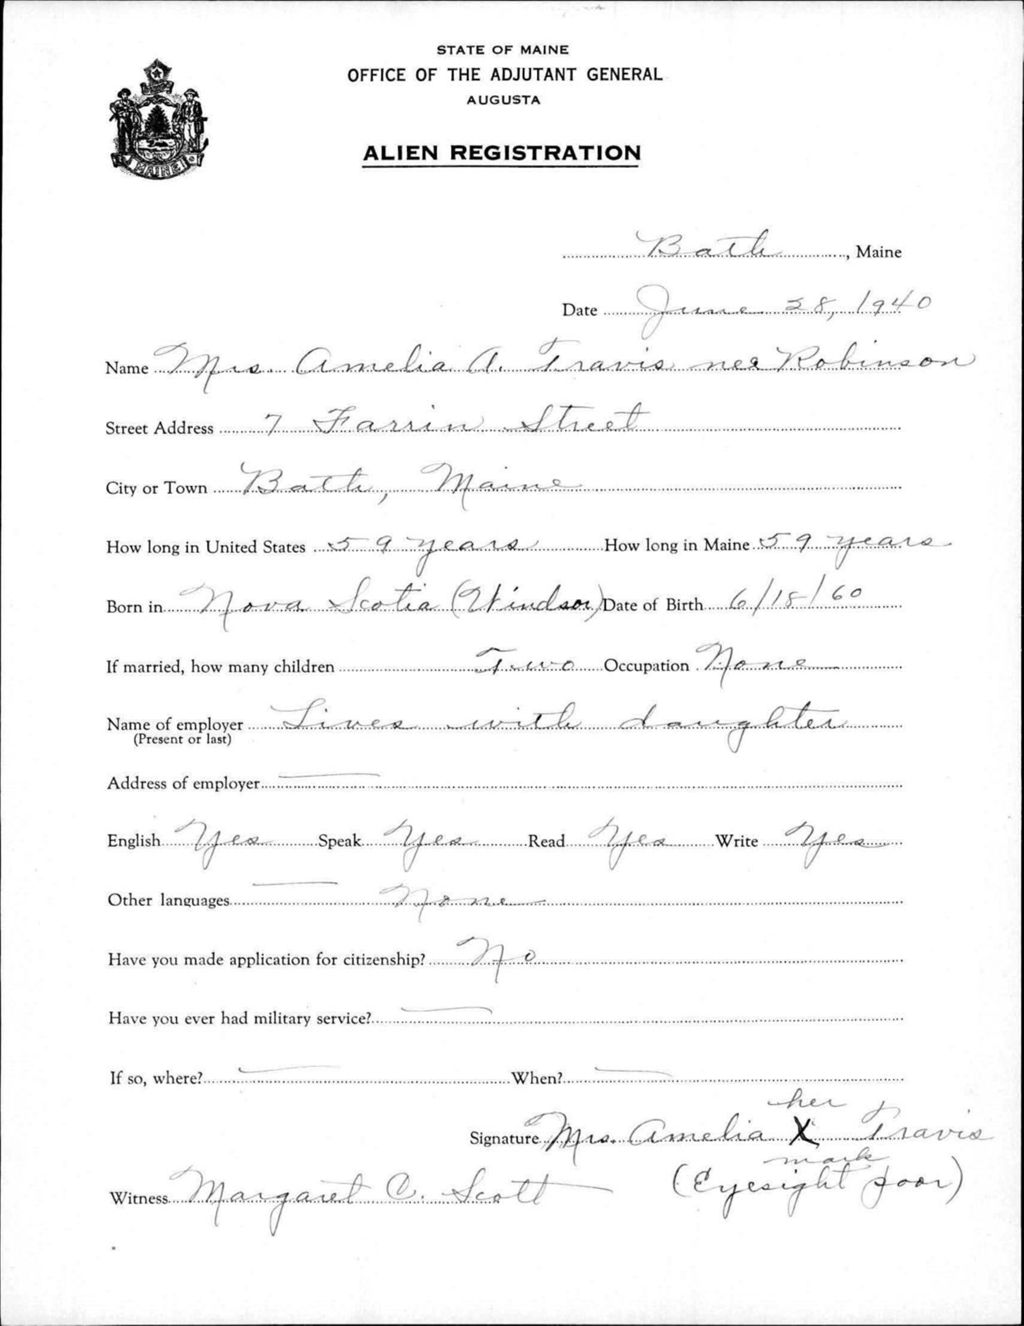 STATE OF MAINE
OFFICE OF THE ADJUTANT GENERAL
AUGUSTA
ALIEN REGISTRATION
MAINE
Bath, Maine
Date June 28, 1940
Name Mrs. Amelia A. Travis nee Robinson
Street Address 7 Farrin Street
City or Town Bath, Maine
How long in United States 59 years How long in Maine 59 years
Born in Nova Scotia (Windsor) Date of Birth 6/18/60
If married, how many children Two Occupation None
Name of employer Lives with daughter
(Present or last)
Address of employer
English Yes Speak Yes Read Yes Write Yes
Other languages None
Have you made application for citizenship? No
Have you ever had military service?
If so, where? When?
her
Signature Mrs. Amelia X Travis
mark
Witness Margaret C. Scott (Eyesight poor)